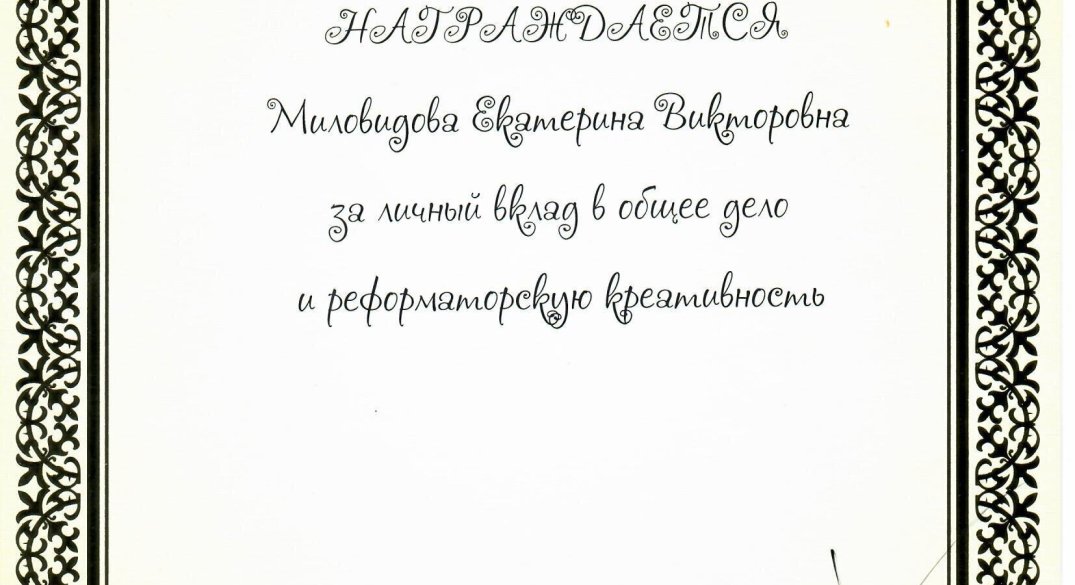 НАГРАЖДАЕТСЯ
Миловидова Екатерина Викторовна
за личный вклад в общее дело
и реформаторскую креативность